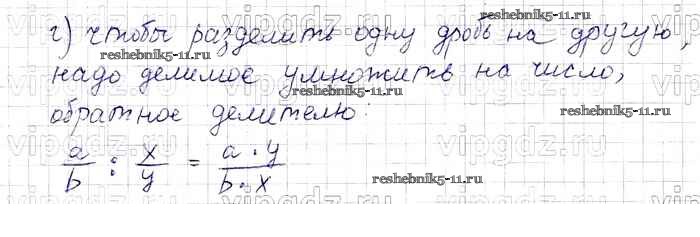 г) чтобы разделить одну дробь на другую,
надо делимое умножить на число,
обратное делителю:
a/b : x/y = a · y / b · x
reshebnik5-11.ru
reshebnik5-11.ru
reshebnik5-11.ru
reshebnik5-11.ru
vipgdz.ru
vipgdz.ru
vipgdz.ru